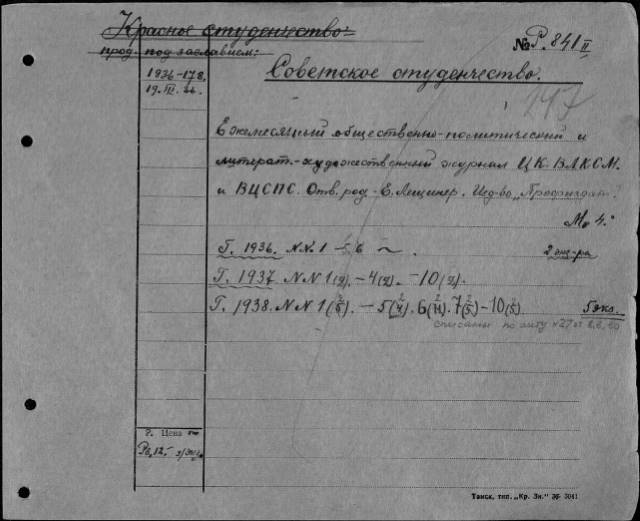 Красное студенчество
прод. под заглавием:
№ Р. 841 II
1936-178.
19. III. 36.
Советское студенчество.
247
Ежемесяцный общественно-политический и
литерат.-художественный журнал ЦК. ВЛКСМ.
и ВЦСПС. Отв. ред.- Е. Лещинер. Изд-во „Профиздат".
М. 4°
Г. 1936. NN. 1 - 6
2 экз-ра
Г. 1937 NN 1(2). - 4(2). - 10(2).
Г. 1938. NN 1( ). - 5( ). 6( ). 7( ) - 10( )
5 экз.
списаны по акту №27 от
Р. Цена
Рб. 12.-
Томск, тип. „Кр. Зн." 5041